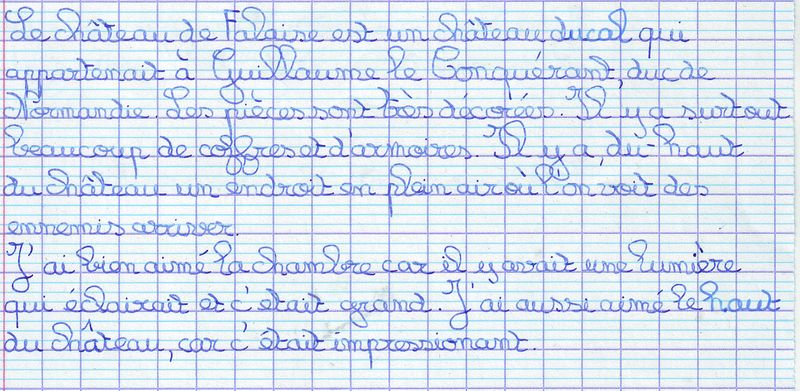 Le château de Falaise est un château ducal qui
appartenait à Guillaume le Conquérant, duc de
Normandie. Les pièces sont très décorées. Il y a surtout
beaucoup de coffres et d'armoires. Il y a, du-haut
du château un endroit en plein air où l'on voit des
ennemis arriver.
J'ai bien aimé la chambre car il y avait une lumière
qui éclairait et c'était grand. J'ai aussi aimé le haut
du château, car c'était impressionant.